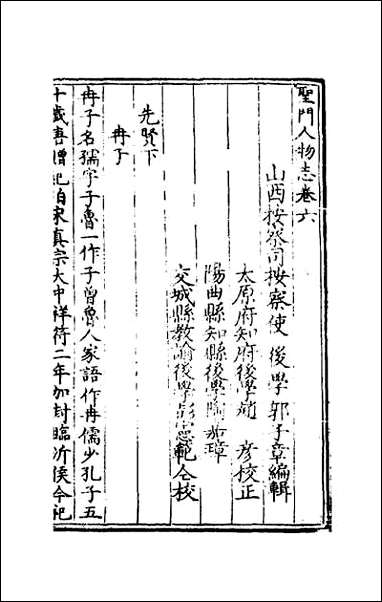 聖門人物志卷六
山西按察司按察使後學郭子章編輯
太原府知府後學趙彥校正
陽曲縣知縣後學陶嘉璋
交城縣教諭後學彭憲範仝校
先賢下
冉子
冉子名孺字子魯一作子曾魯人家語作冉儒少孔子五
十歲唐贈紀伯宋真宗大中祥符二年加封臨沂侯今祀